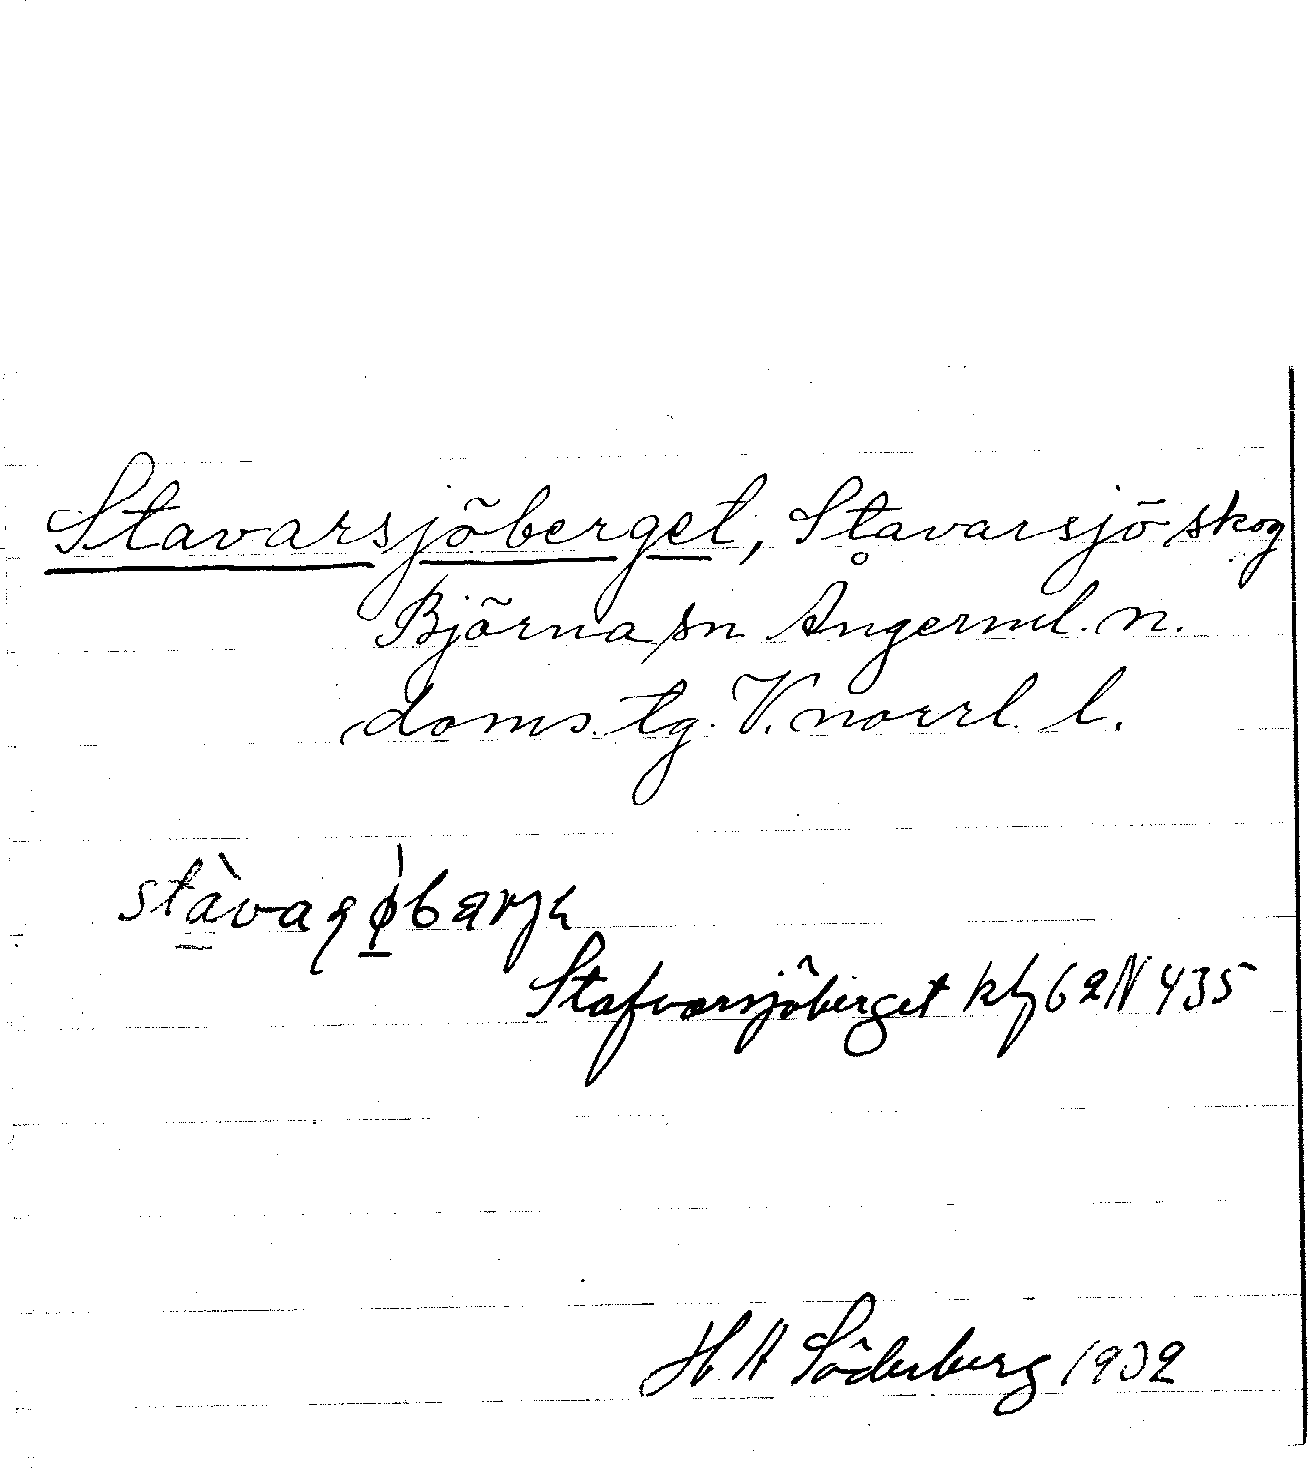 Stavarsjöberget, Stavarsjö skog
Björna sn Ångerml. n.
doms. tg. V. norrl. l.
Stafvarsjöberget kb 62 N 435
H A Söderberg 1932